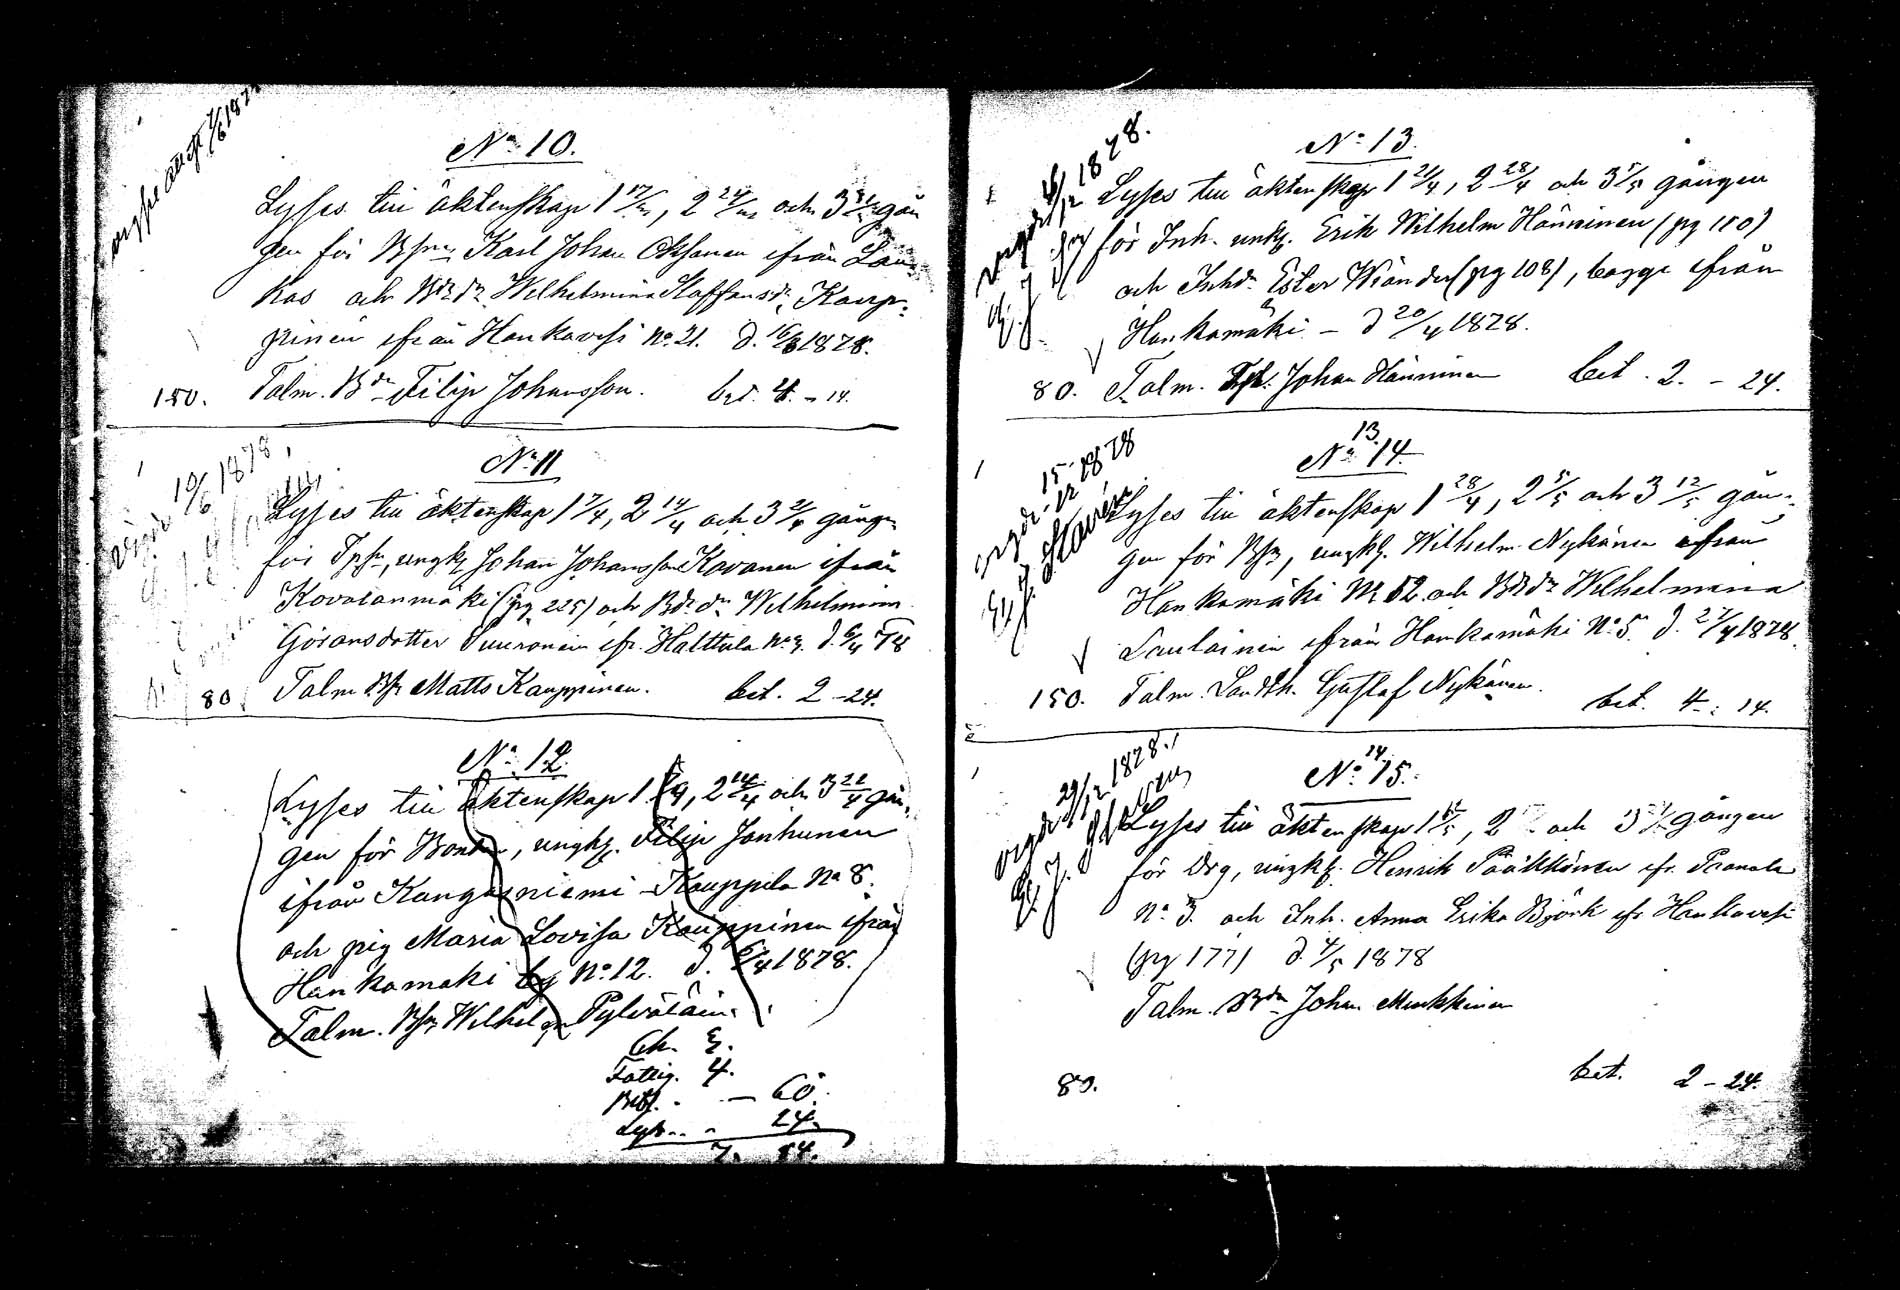 No 10.
Lyses till äktenskap 1 17/3, 2 24/3 och 3 31/3 gån
gen för Bsn Karl Johan Oksanen ifrån Lau
kas och Bdedr Wilhelmina Staffansdr Kaup-
pinen ifrån Hankavesi No. 21. d. 16/3 1878.
150. Talm. Bdn Filip Johansson. bet. 4. - 14.
Vigde 10/6 1878,
No 11
Lyses till äktenskap 1 7/4, 2 14/4 och 3 21/4 gången
för Tpsn, ungk Johan Johansson Kovanen ifrån
Kovalanmäki (pg 225) och Bdedr Wilhelmina
Göransdotter Suuronen ifr. Halttula No 3. d. 6/4 78
80 Talm Bsn Matts Kauppinen. bet. 2 - 24.
No 12.
Lyses till äktenskap 1 7/4, 2 14/4 och 3 21/4 gån-
gen för Bonden, ungk. Filip Janhunen
ifrån Kangasniemi Kauppila No 8.
och pig Maria Lovisa Kauppinen ifrån
Hankamäki by No 12. d. 6/4 1878.
Talm. Bsn Wilhelm Pylväläin.
Ck. 3.
Fattig. 4.
- 60.
Lysn. . 24.
7. 84.
No 13.
1878.
Lyses till äktenskap 1 21/4, 2 28/4 och 3 5/5 gången
för Inh. ungk. Erik Wilhelm Hänninen (pg 110)
och Inhdr Ester Wiander (pg 108), bägge ifrån
Hankamäki - d 20/4 1878.
80. Talm. Johan Hänninen bet. 2. - 24.
13.
No 14.
15/12 1878
Lyses till äktenskap 1 28/4, 2 5/5 och 3 12/5 gån-
gen för Bsn, ungk. Wilhelm Nykänen ifrån
Hankamäki No 12 och Bdedr Wilhelmina
Laulainen ifrån Hankamäki No 5. d. 27/4 1878.
150. Talm. Landth. Gustaf Nykänen. bet. 4 : 14.
14.
No 15.
29/12 1878.
Lyses till äktenskap 1 5/5, 2 och 3 gången
för Drg, ungk. Henrik Pääkkönen ifr.
No 3. och Inh. Anna Erika Björk ifr Hankavesi
(pg 177) d 4/5 1878
Talm. Bdn Johan Munkkinen
80. bet. 2 - 24.